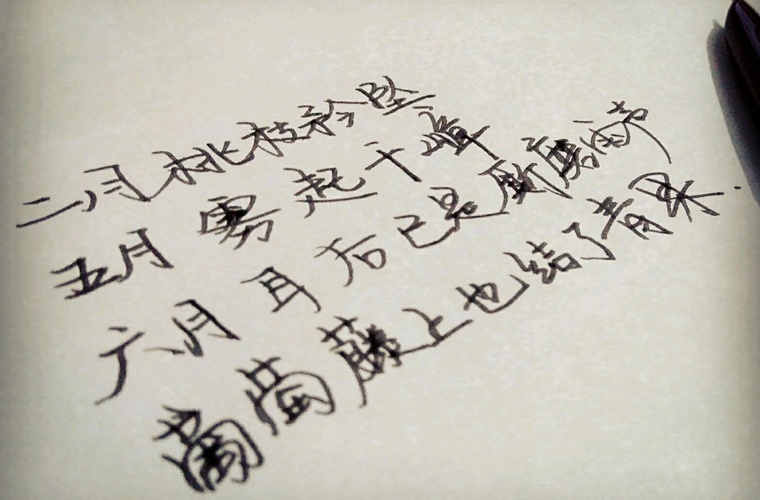 二月桃枝坠
五月雾起千
六月耳后已是新
葡萄藤上也结了青果.